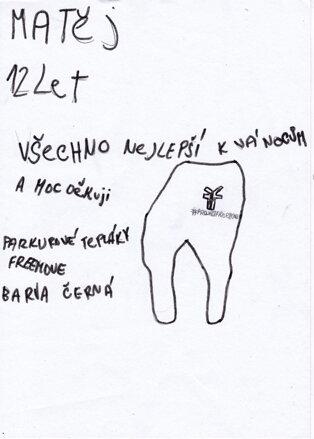 MATĚJ
12 Let
VŠECHNO NEJLEPŠÍ K VÁNOCŮM
A MOC DĚKUJI
PARKUROVÉ TEPLÁKY
FREEMOVE
BARVA ČERNÁ